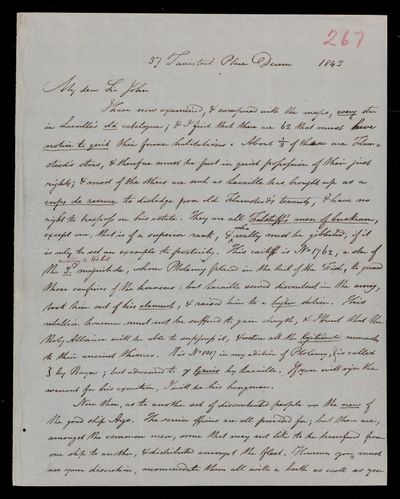 267
37 Tavistock Place Decem 1843
My dear Sir John
I have now examined, & compared with the maps, every star
in Lacaille's old catalogue; & I find that there are 62 that must have
notice to quit their former habitations. About ⅓ of these are Flam-
steed's stars, & therefore must be put in quiet possession of their just
rights; & most of the others are such as Lacaille has brought up as a
corps de reserve to dislodge poor old Flamsteed's tenants, & have no
right to trespass on his estate. They are all Falstaff's men of buckram,
except one, that is of a superior rank, & who really must be gibbeted, if it
is only to set an example to posterity. This caitiff is Nº 1762, a star of
the 3d magnitude, whom Ptolemy placed in the tail of the Fish, to guard
those confines of the heavens: but Lacaille second discontent in the army,
took him out of his element, & raised him to a higher station. This
rebellion however must not be suffered to gain strength, & I trust that the
Holy Alliance will be able to suppress it, & restore all the legitimate monarchs
to their ancient thrones. It is Nº 1017 in my edition of Ptolemy, & is called
by Bayer; but advanced to γ by Lacaille. If you will sign the
warrant for his execution, I will be his hangman.
Now then, as to another set of discontented people in the crew of
the good ship Argo. The senior officers are all provided for; but there are,
amongst the common men, some that may not like to be transferred from
one ship to another, & distributed amongst the fleet. However you must
use your discretion, accommodate them all with a berth as well as you